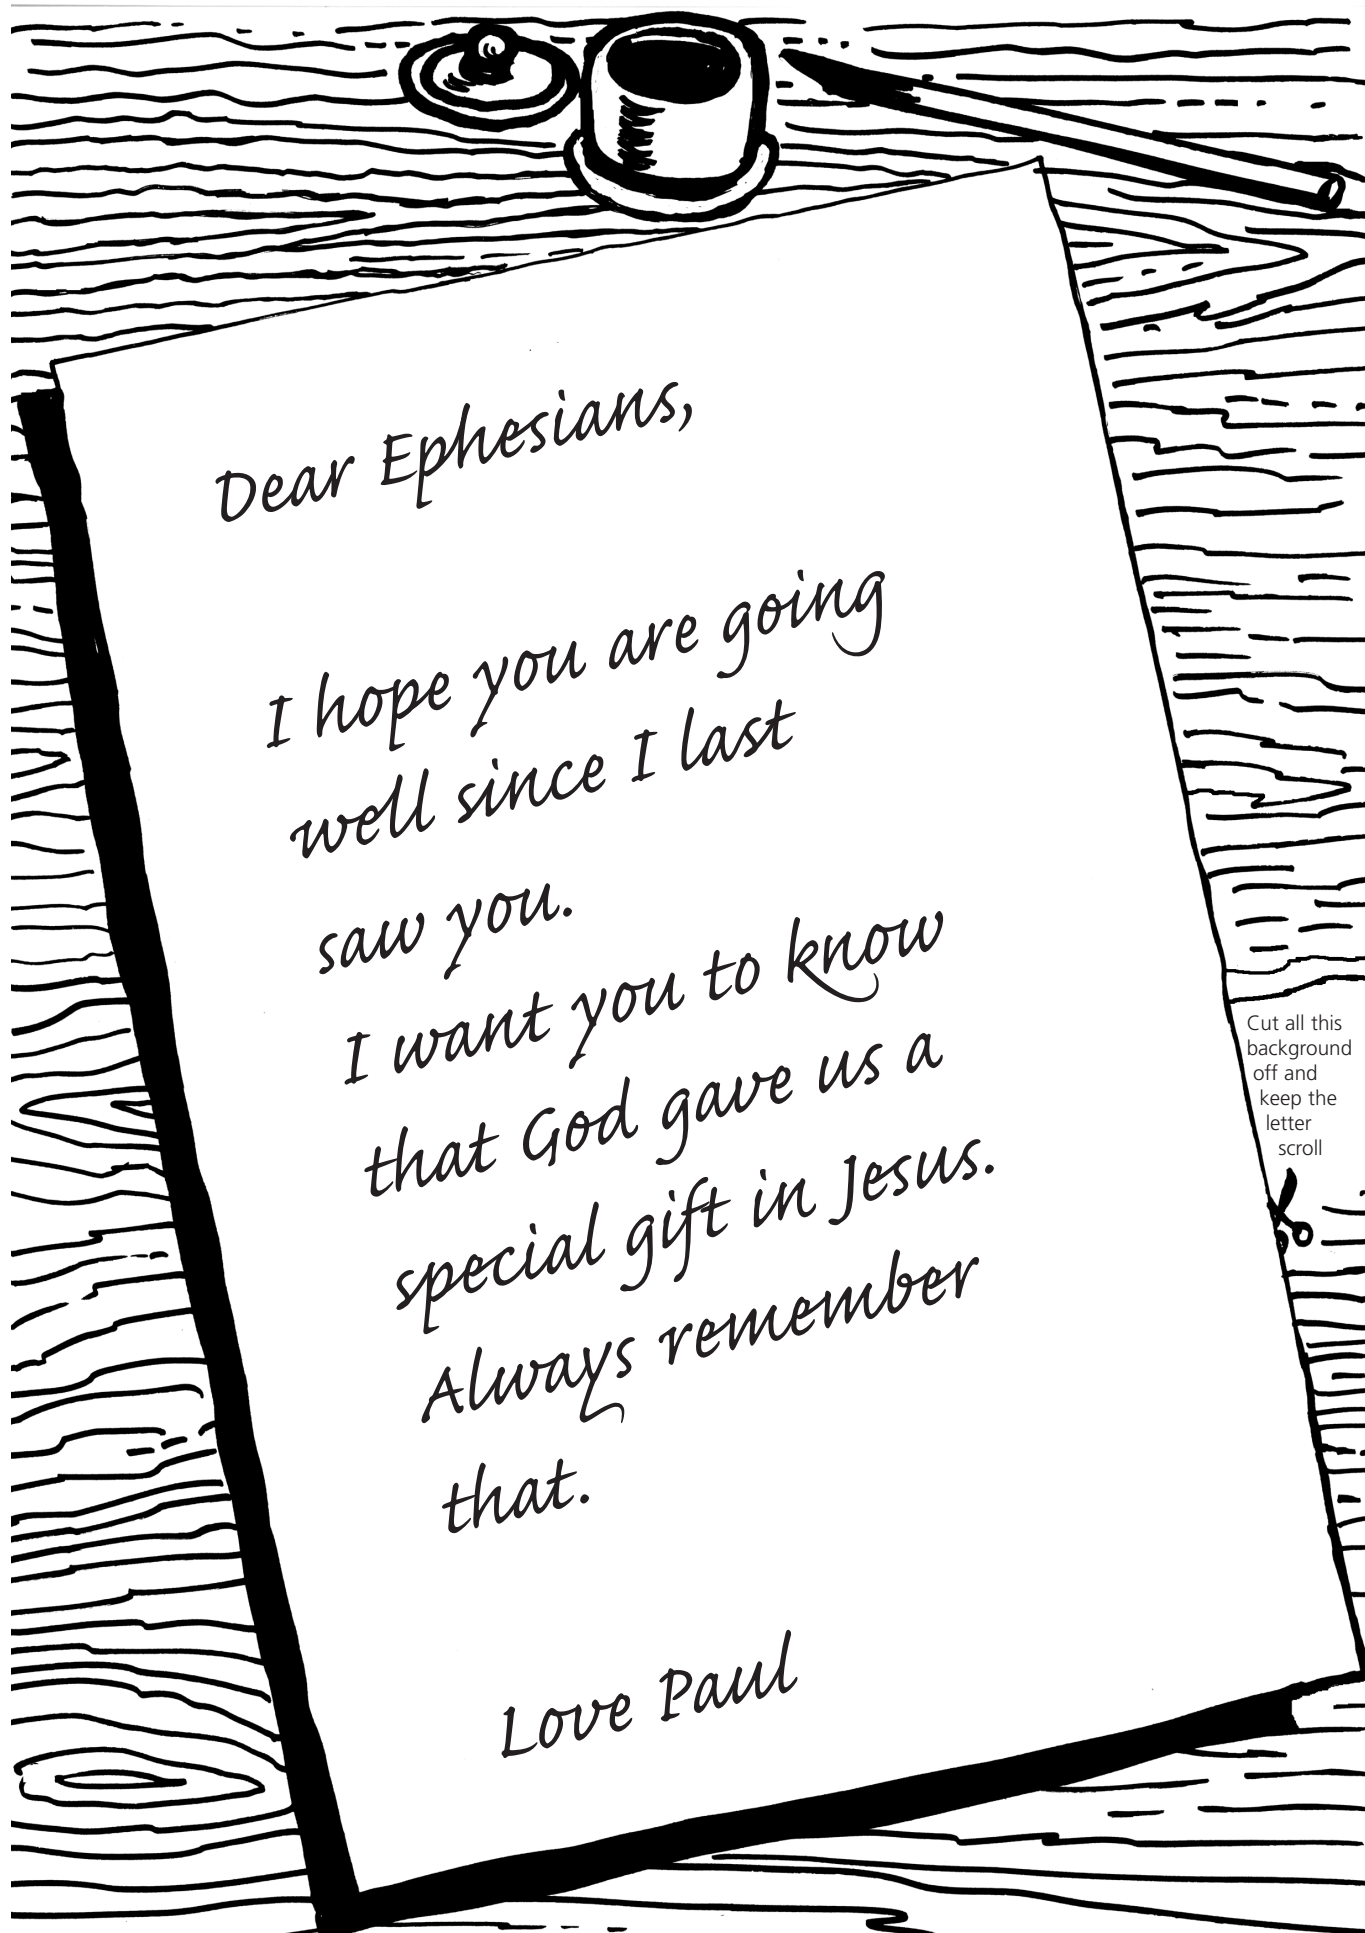 Dear Ephesians,
I hope you are going
well since I last
saw you.
I want you to know
that God gave us a
special gift in Jesus.
Always remember
that.
Love Paul
Cut all this
background
off and
keep the
letter
scroll